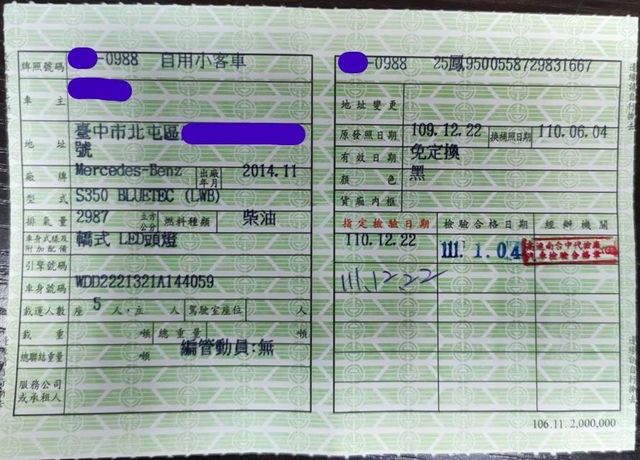 牌照號碼 -0988 自用小客車
車主
地址 臺中市北屯區
號
廠牌 Mercedes-Benz 出廠年月 2014.11
型式 S350 BLUETEC (LWB)
排氣量 2987 立方公分 燃料種類 柴油
車身式樣及附加配備 轎式 LED頭燈
引擎號碼
車身號碼 WDD2221321A144059
載運人數 座 5 人，立 人 駕駛室座位 人
載重 噸 總重量 噸
總聯結重量 噸 編管動員:無
服務公司或承租人
-0988 25鳳9500558729831667
地址變更
原發照日期 109.12.22 換補照日期 110.06.04
有效日期 免定換
顏色 黑
貨廂內框
指定檢驗日期 檢驗合格日期 經辦機關
110.12.22 111.1.04
111.12.22
106.11.2,000,000